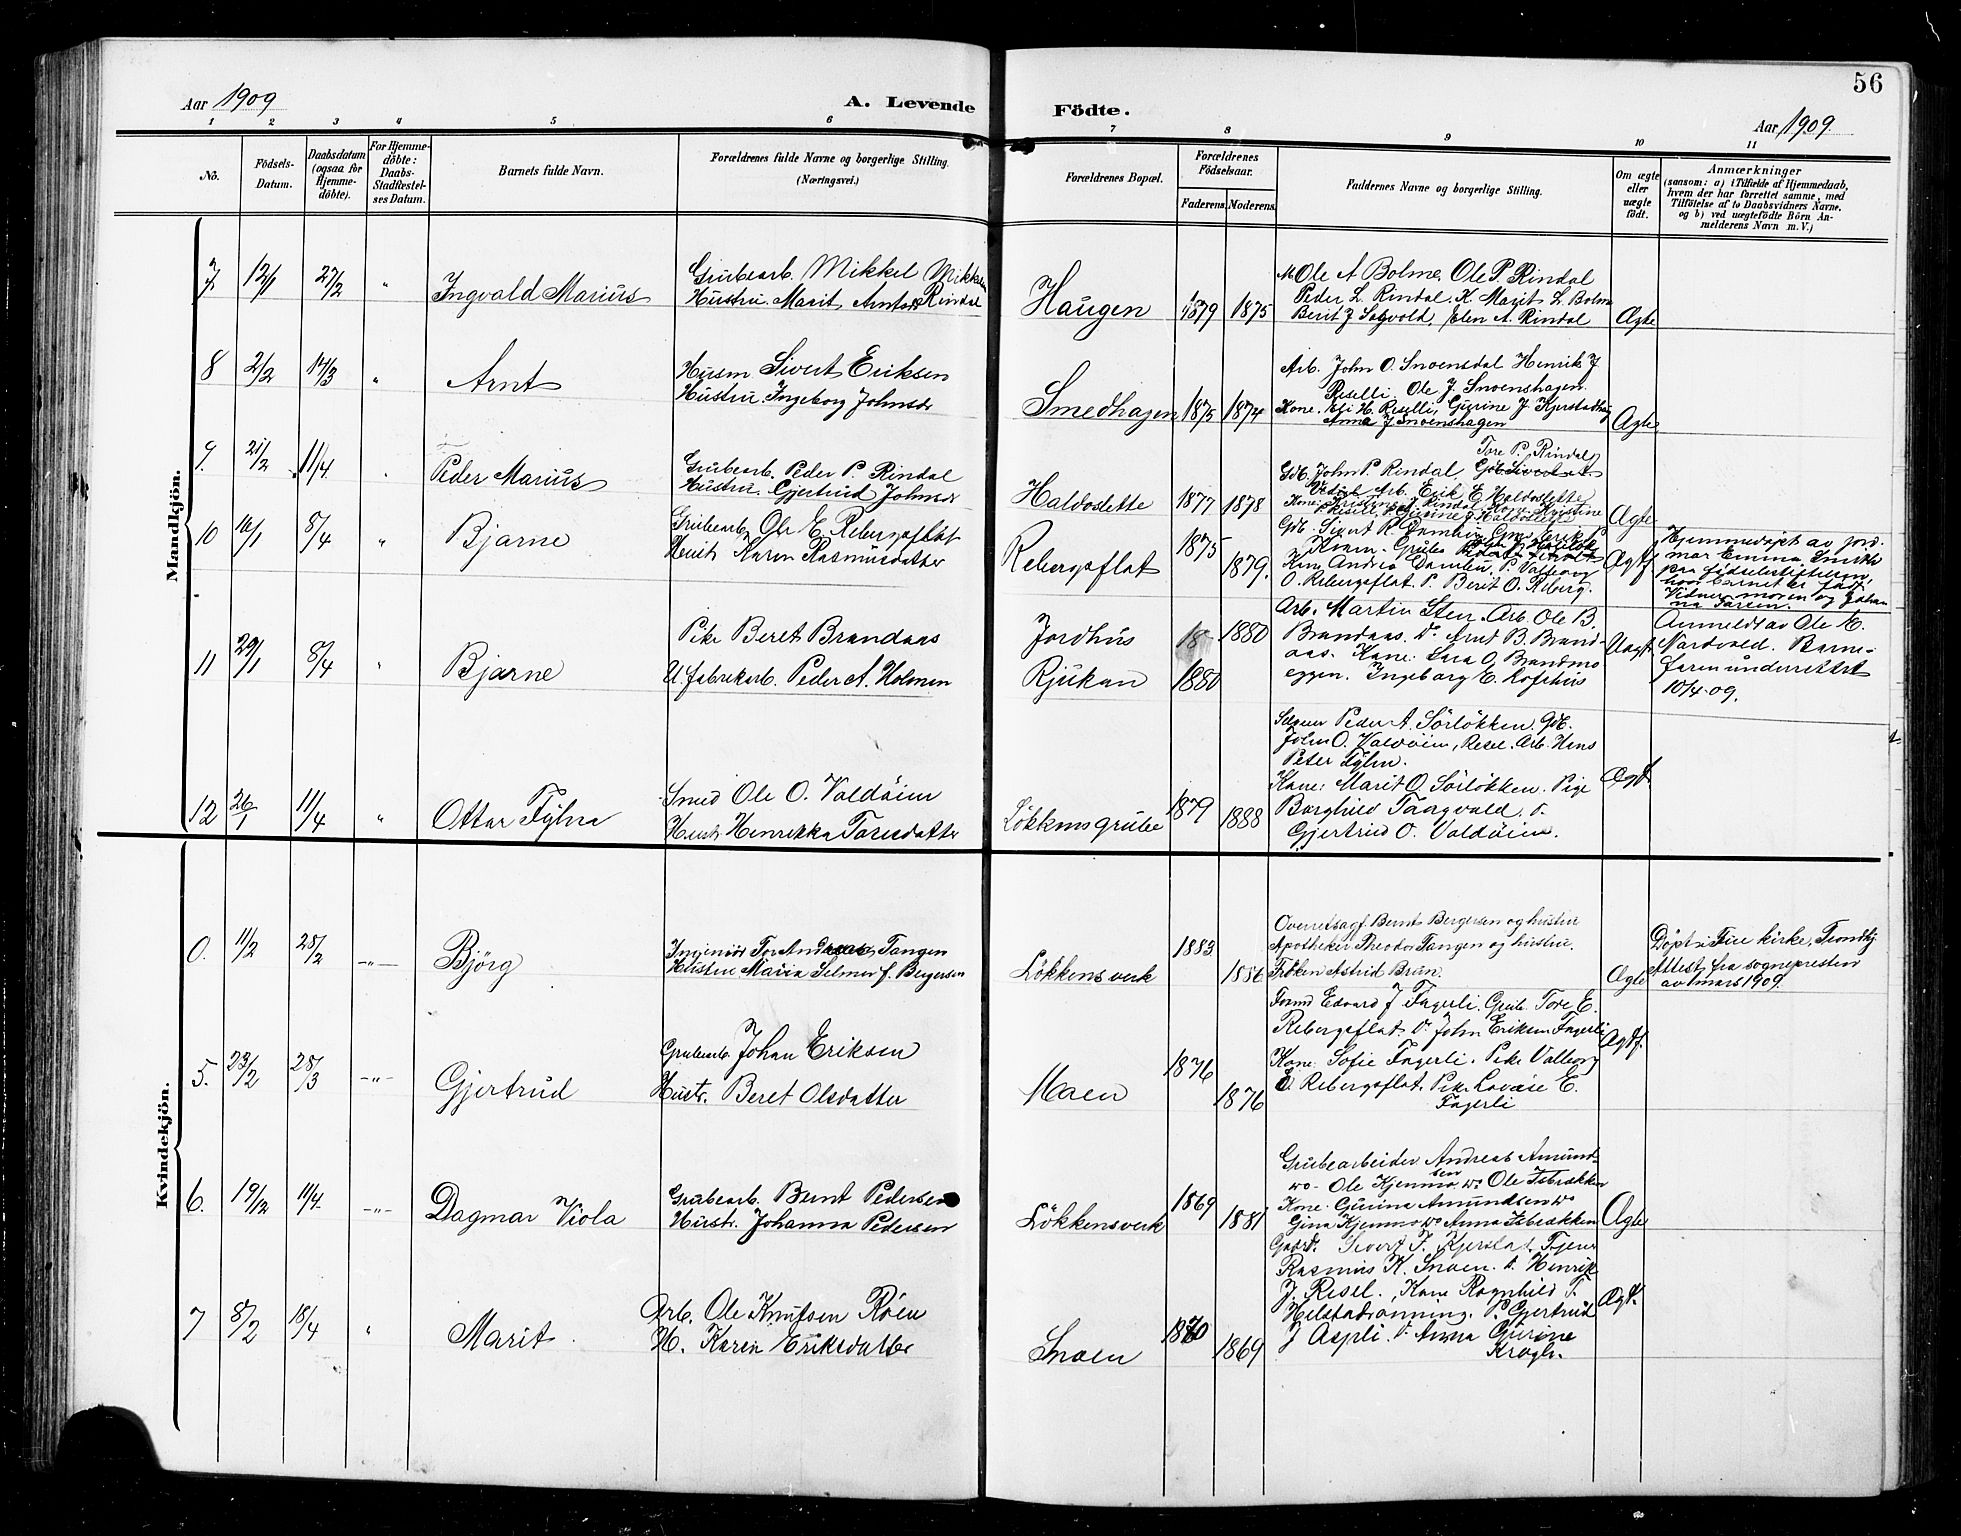 56
Aar 1909
A. Levende
Födte.
Aar 1909.
1 2 3 4 5 6 7 8 9 10 11
No.
Födsels-
Datum.
Daabsdatum
(ogsaa for
Hjemme-
döbte).
For Hjemme-
döbte:
Daabs-
Stadfæstel-
ses Datum.
Barnets fulde Navn.
Forældrenes fulde Navne og borgerlige Stilling.
(Næringsvei.)
Forældrenes Bopæl.
Forældrenes
Födselsaar.
Faderens. Moderens.
Faddernes Navne og borgerlige Stilling.
Om ægte
eller
uægte
födt.
Anmærkninger
(saasom: a) i Tilfælde af Hjemmedaab,
hvem der har forrettet samme, med
Tilföielse af to Daabsvidners Navne,
og b) ved uægtefödte Börn An-
melderens Navn m. V.)
Mandkjön.
7. 12/1 27/2 " Ingvald Marius
Grubearb. Mikkel Mikkelsen
Hustru. Marit Arntsdr Rindal
Haugen 1879 1875
Ole A Bolme, Ole P. Rindal
Peder L. Rindal. K. Marit L. Bolme
Berit J Solvold, Elen A. Rindal
Ægte
8 2/2 14/3 " Arnt
Husm Sivert Eriksen
Hustru. Ingeborg Johnsdr
Smedhagen 1875 1874
Arb. John O. Snoensdal Henrik J.
Reselli, Ole J. Snoenshagen.
Kone. Eli H. Reselli, Gurine J. Kjerstadhaug
Anna J Snoenshagen
Ægte
9. 21/2 11/4 " Peder Marius
Grubearb. Peder P. Rindal
Hustru. Gjertrud Johnsdr
Haldoslette 1877 1878
Tore P. Rindal
Gdb. John P. Rindal,
Arb. Erik E Haldoslette
Ægte
10 16/1 8/4 " Bjarne
Grubearb. Ole E. Rebergsflat
Hustr Karen Rasmusdatter
Rebergsflat 1875 1879.
Gdb. Sivert R. Dambu
Kone Andrea Dambu, P. Valborg
O. Rebergsflat P. Berit O. Reberg.
Ægtf
Hjemmedøpt av jord-
mor Emma Smith
paa fødselsstiftelsen,
hvor barnet er født.
Vidner: moren og Johan-
na Larsen.
11 29/1 8/4 " Bjarne
Pike Beret Brandaas
U. fabrikarb. Peder A. Holmen
Jordhus 1880
Rjukan 1880
Arb. Martin Sten. Arb. Ole B.
Brandaas. Do Arnt B. Brand-
aas. Kone: Sara O. Brandmo
eggen. Ingeborg E. Kofshus
Uægt.
Anmeldt av Ole E.
Nordvald. Barne-
faren underrettet
10/4-09.
12 26/1 11/4 " Ottar Fylna
Smed Ole O. Valdøien
Hustr Henrikka Toresdatter
Løkkensgrube 1879 1888
Selgeier Peder A. Sørløkken. Gdb.
John O. Valdøien, Resel. Arb. Hans
Peter Fylm.
Kone: Marit O. Sørløkken. Pige
Borghild Taagvald. D.
Gjertrud O. Valdøien.
Ægt.
Kvindekjön.
0. 11/2 28/2 -"- Bjórg
Ingeniør Tor Andreas Tangen
Hustru Maria Selmer f. Bergersen
Løkkensverk 1883 1886
Overretssagf. Bernt Bergersen og hustru
Apotheker Theodor Tangen og hustru.
Frøken Astrid Brun.
Ægte
Døpt i Frue kirke, Trondhj.
Attest fra sognepresten
av 1 mars 1909.
5. 23/2 28/3 -"- Gjertrud
Grubearb. Johan Eriksen
Hustr. Beret Olsdatter
Moen 1876 1876
Formd Edvard J Fagerli. Grub. Tore E.
Rebergsflat Do John Eriksen Fagerli
Kone. Sofie Fagerli. Pike Valborg
O. Rebergsflat. Pike Lovise E.
Fagerli
Ægtf.
6. 19/12 11/4 -"- Dagmar Viola
Grubearb. Bernt Pedersen
Hustr. Johanna Pedersen
Løkkensverk 1869 1881
Grubearbeider Andreas Amund-
sen
Do- Ole Kjenmo, Do Ole Isbrækken
Kone. Gurina Amundsen Do
Gina Kjenmo Do Anna Isbrækken
Ægte
7 8/2 18/4 " Marit
Arb. Ole Knutsen Røen
H. Karen Eriksdatter
Snoen 1870 1869
Gaardr. Sivert T. Kjerstad. Tjener
Rasmus K. Snoen. D. Henrik
J. Resel. Kone Ragnhild T.
Helstadrønning. P. Gjertrud
J Aspli. D. Anna Gurine
Kragli.
Ægt.